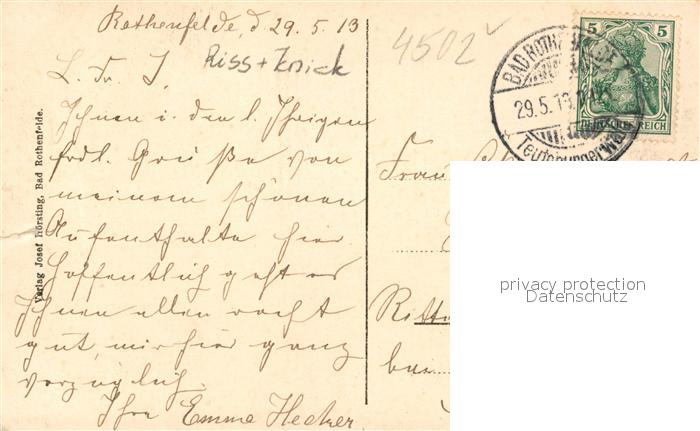 Rothenfelde, d. 29. 5. 13
Riss + Knick
4502
L. Fr. J.
Ihnen u. den l. Ihrigen
frdl. Grüße von
meinem schönen
Aufenthalte hier.
Hoffentlich geht es
Ihnen allen recht
gut, mir hier ganz
vorzüglich.
Ihre Emma Hecker.
Verlag Josef Hörsting, Bad Rothenfelde.
BAD ROTHENFELDE
29.5.13
Teutoburgerw
5 5
DEUTSCHES REICH
Frau
Ritt
bei
privacy protection
Datenschutz